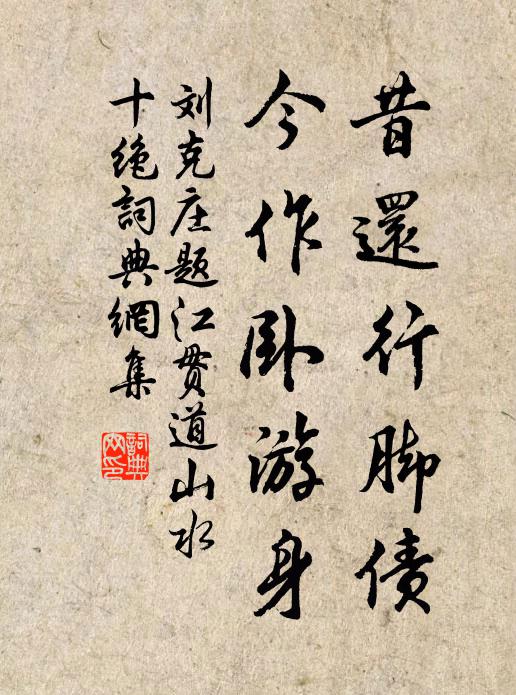 昔還行脚债
今作卧游身
刘克庄题江贯道山水
十绝詞典網集
詞典网印